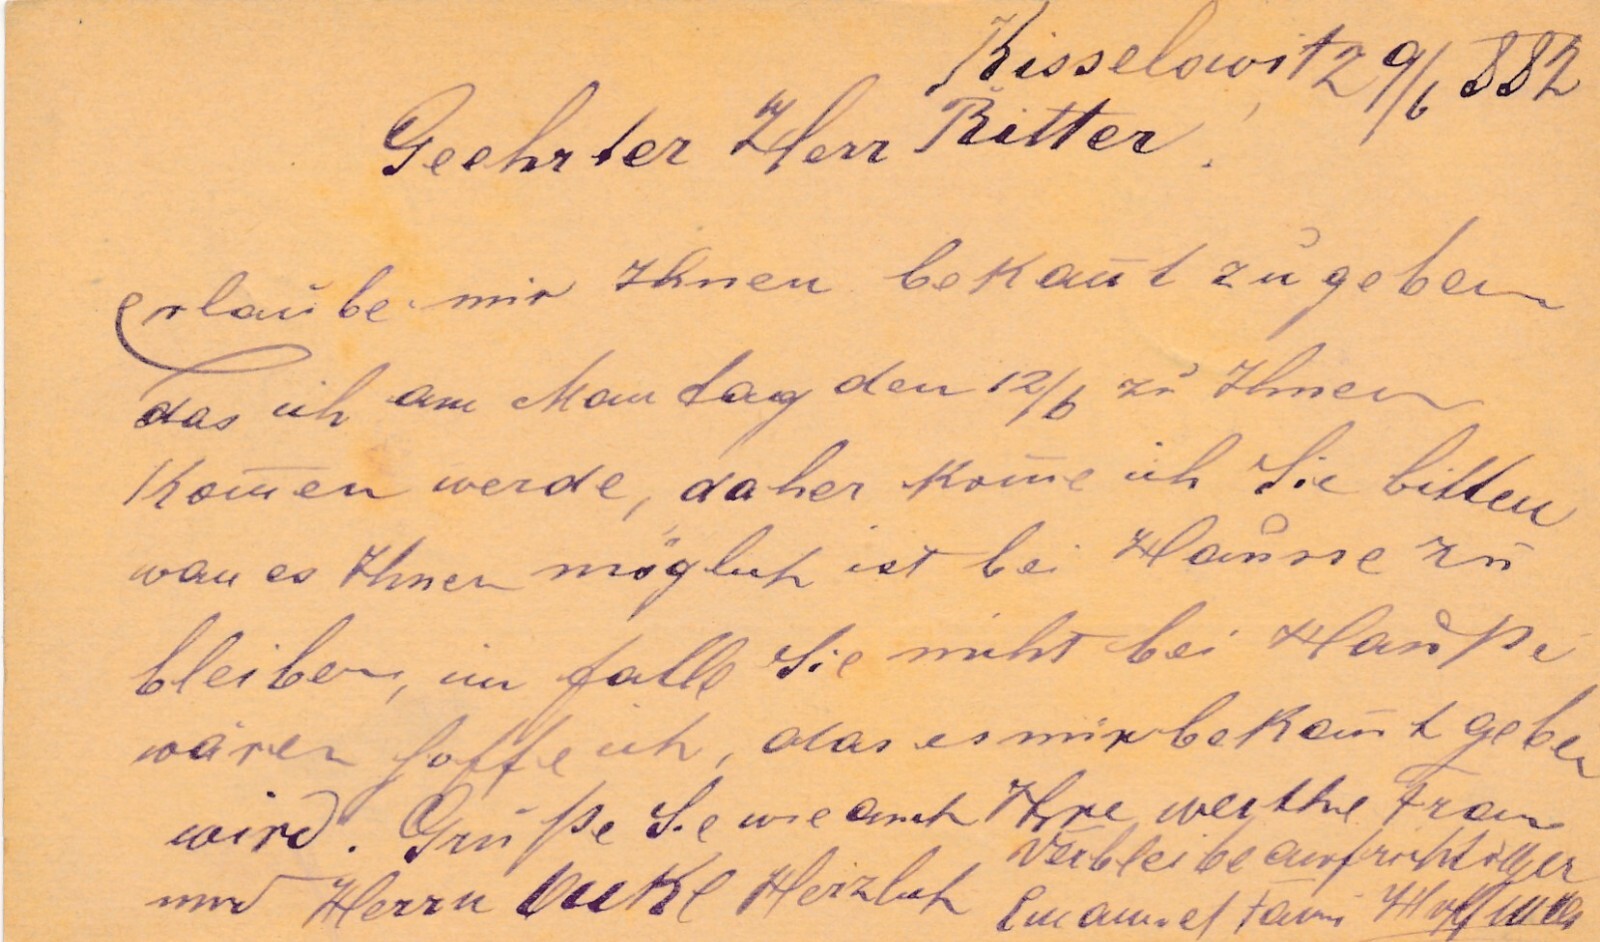 Kisselowitz 9/6 882
Geehrter Herr Ritter!
erlaube mir Ihnen bekan̄t zu geben
das ich am Mantag den 12/6 zu Ihnen
kom̄en werde, daher kom̄e ich Sie bitten
wan es Ihnen möglich ist bei Hausse zu
bleiben, im falle Sie nicht bei Hauße
wären hoffe ich, das es mir bekan̄t geben
wird. Grüße Sie wie auch Ihre werthe Frau
und Herrn Onkl Herzlich
Verbleibe aufrichtiger
Emanuel